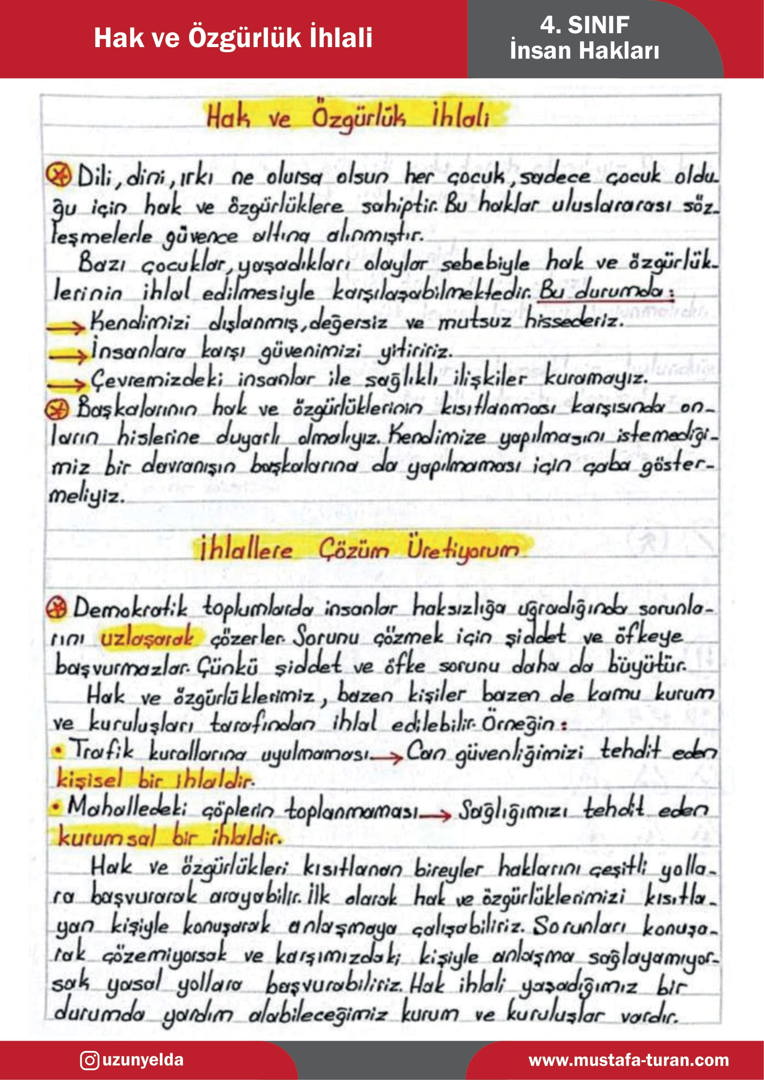 Hak ve Özgürlük İhlali
4. SINIF
İnsan Hakları
Hak ve Özgürlük İhlali
Dili, dini, ırkı ne olursa olsun her çocuk, sadece çocuk oldu-
ğu için hak ve özgürlüklere sahiptir. Bu haklar uluslararası söz-
leşmelerle güvence altına alınmıştır.
Bazı çocuklar, yaşadıkları olaylar sebebiyle hak ve özgürlük-
lerinin ihlal edilmesiyle karşılaşabilmektedir. Bu durumda:
→ Kendimizi dışlanmış, değersiz ve mutsuz hissederiz.
→ İnsanlara karşı güvenimizi yitiririz.
→ Çevremizdeki insanlar ile sağlıklı ilişkiler kuramayız.
Başkalarının hak ve özgürlüklerinin kısıtlanması karşısında on-
ların hislerine duyarlı olmalıyız. Kendimize yapılmasını istemediği-
miz bir davranışın başkalarına da yapılmaması için çaba göster-
meliyiz.
İhlallere Çözüm Üretiyorum
Demokratik toplumlarda insanlar haksızlığa uğradığında sorunla-
rını uzlaşarak çözerler. Sorunu çözmek için şiddet ve öfkeye
başvurmazlar. Çünkü şiddet ve öfke sorunu daha da büyütür.
Hak ve özgürlüklerimiz, bazen kişiler bazen de kamu kurum
ve kuruluşları tarafından ihlal edilebilir. Örneğin:
• Trafik kurallarına uyulmaması → Can güvenliğimizi tehdit eden
kişisel bir ihlaldir.
• Mahalledeki çöplerin toplanmaması → Sağlığımızı tehdit eden
kurumsal bir ihlaldir.
Hak ve özgürlükleri kısıtlanan bireyler haklarını çeşitli yolla-
ra başvurarak arayabilir. İlk olarak hak ve özgürlüklerimizi kısıtla-
yan kişiyle konuşarak anlaşmaya çalışabiliriz. Sorunları konuşa-
rak çözemiyorsak ve karşımızdaki kişiyle anlaşma sağlayamıyor-
sak yasal yollara başvurabiliriz. Hak ihlali yaşadığımız bir
durumda yardım alabileceğimiz kurum ve kuruluşlar vardır.
uzunyelda
www.mustafa-turan.com